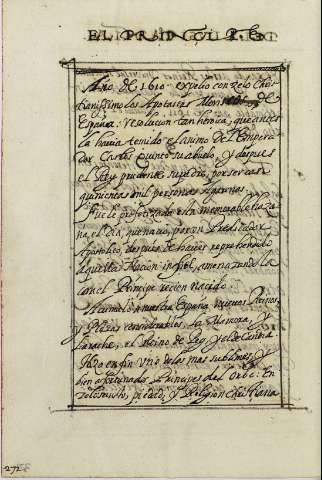 Año de 1610 expelio con zelo Chris
tianissimo los Apostatas Moriscos de
España: resolucion tan heroica, que antes
la havia temido el animo del Empera
dor Carlos Quinto su abuelo, y despues
el Rey prudente su padre, por ser casi
quinientas mil personas
fue le profetizada esta memorable haza
ña, el dia, que nacio, por un Predicador
Apostolico, despues de haver reprehendido
aquella Nacion infiel, amenazando la
con el Principe recien nacido.
a nuestra España nuevos Reinos,
y Plazas la Mamora, y
Larache, el Reino de Pegu, y el de Candia
en fin uno de los mas sublimes, y
bien afortunados Principes del Orbe: En
zelo, justo, piedad, y Religion Christiana
272